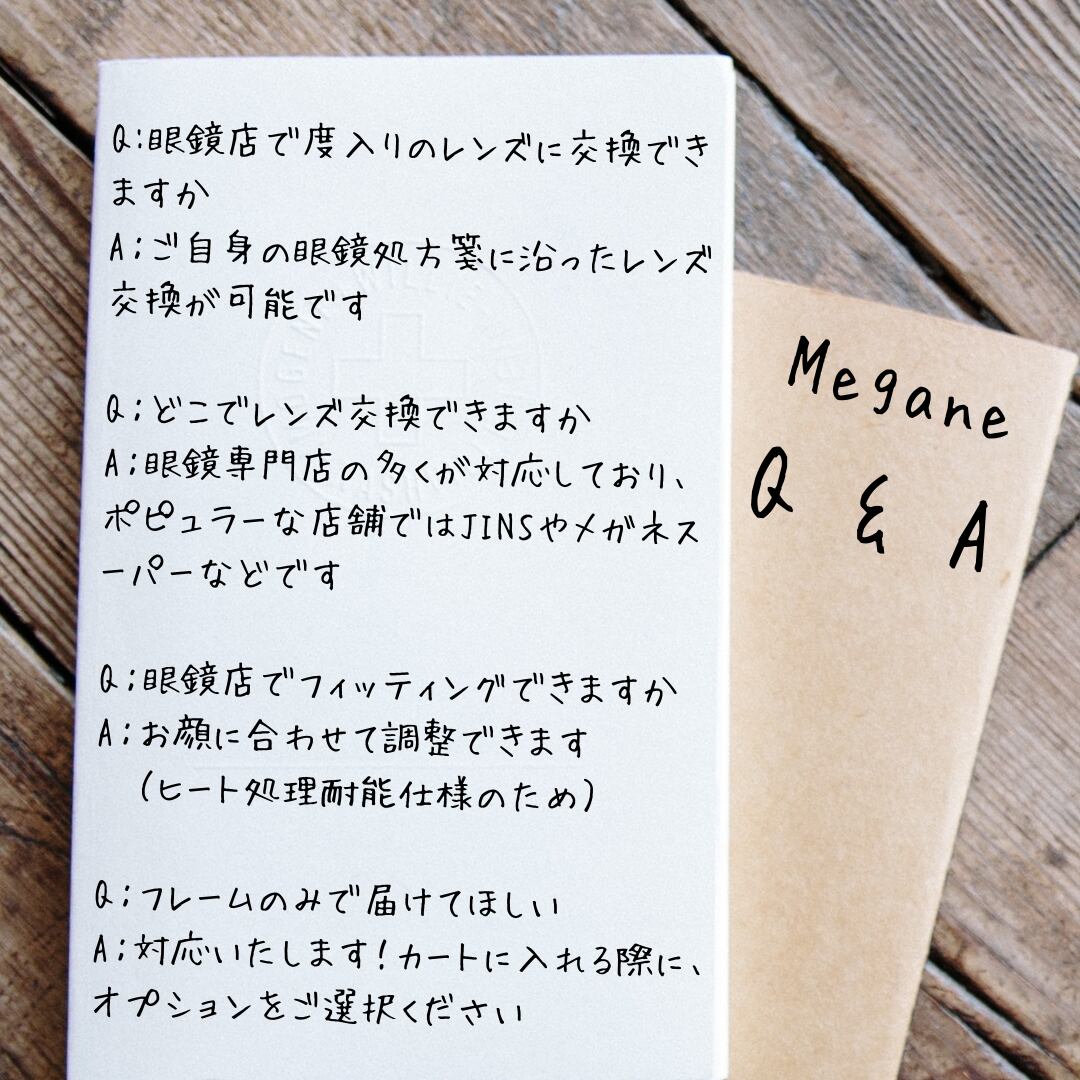 Q:眼鏡店で度入りのレンズに交換でき
ますか
A:ご自身の眼鏡処方箋に沿ったレンズ
交換が可能です
Q:どこでレンズ交換できますか
A:眼鏡専門店の多くが対応しており、
ポピュラーな店舗ではJINSやメガネス
ーパーなどです
Q:眼鏡店でフィッティングできますか
A:お顔に合わせて調整できます
(ヒート処理耐能仕様のため)
Q:フレームのみで届けてほしい
A:対応いたします!カートに入れる際に、
オプションをご選択ください
Megane
Q & A